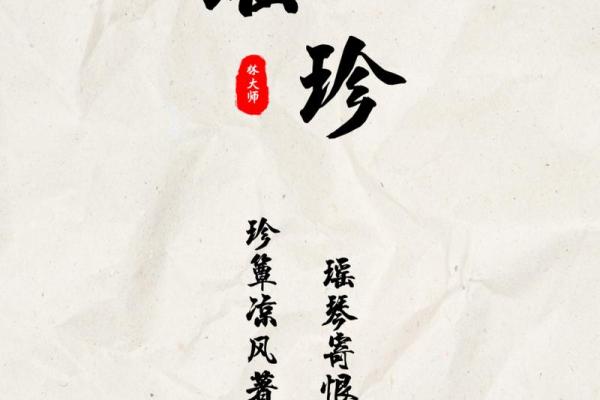 珍
林大师
瑶琴寄恨
珍簟凉风著